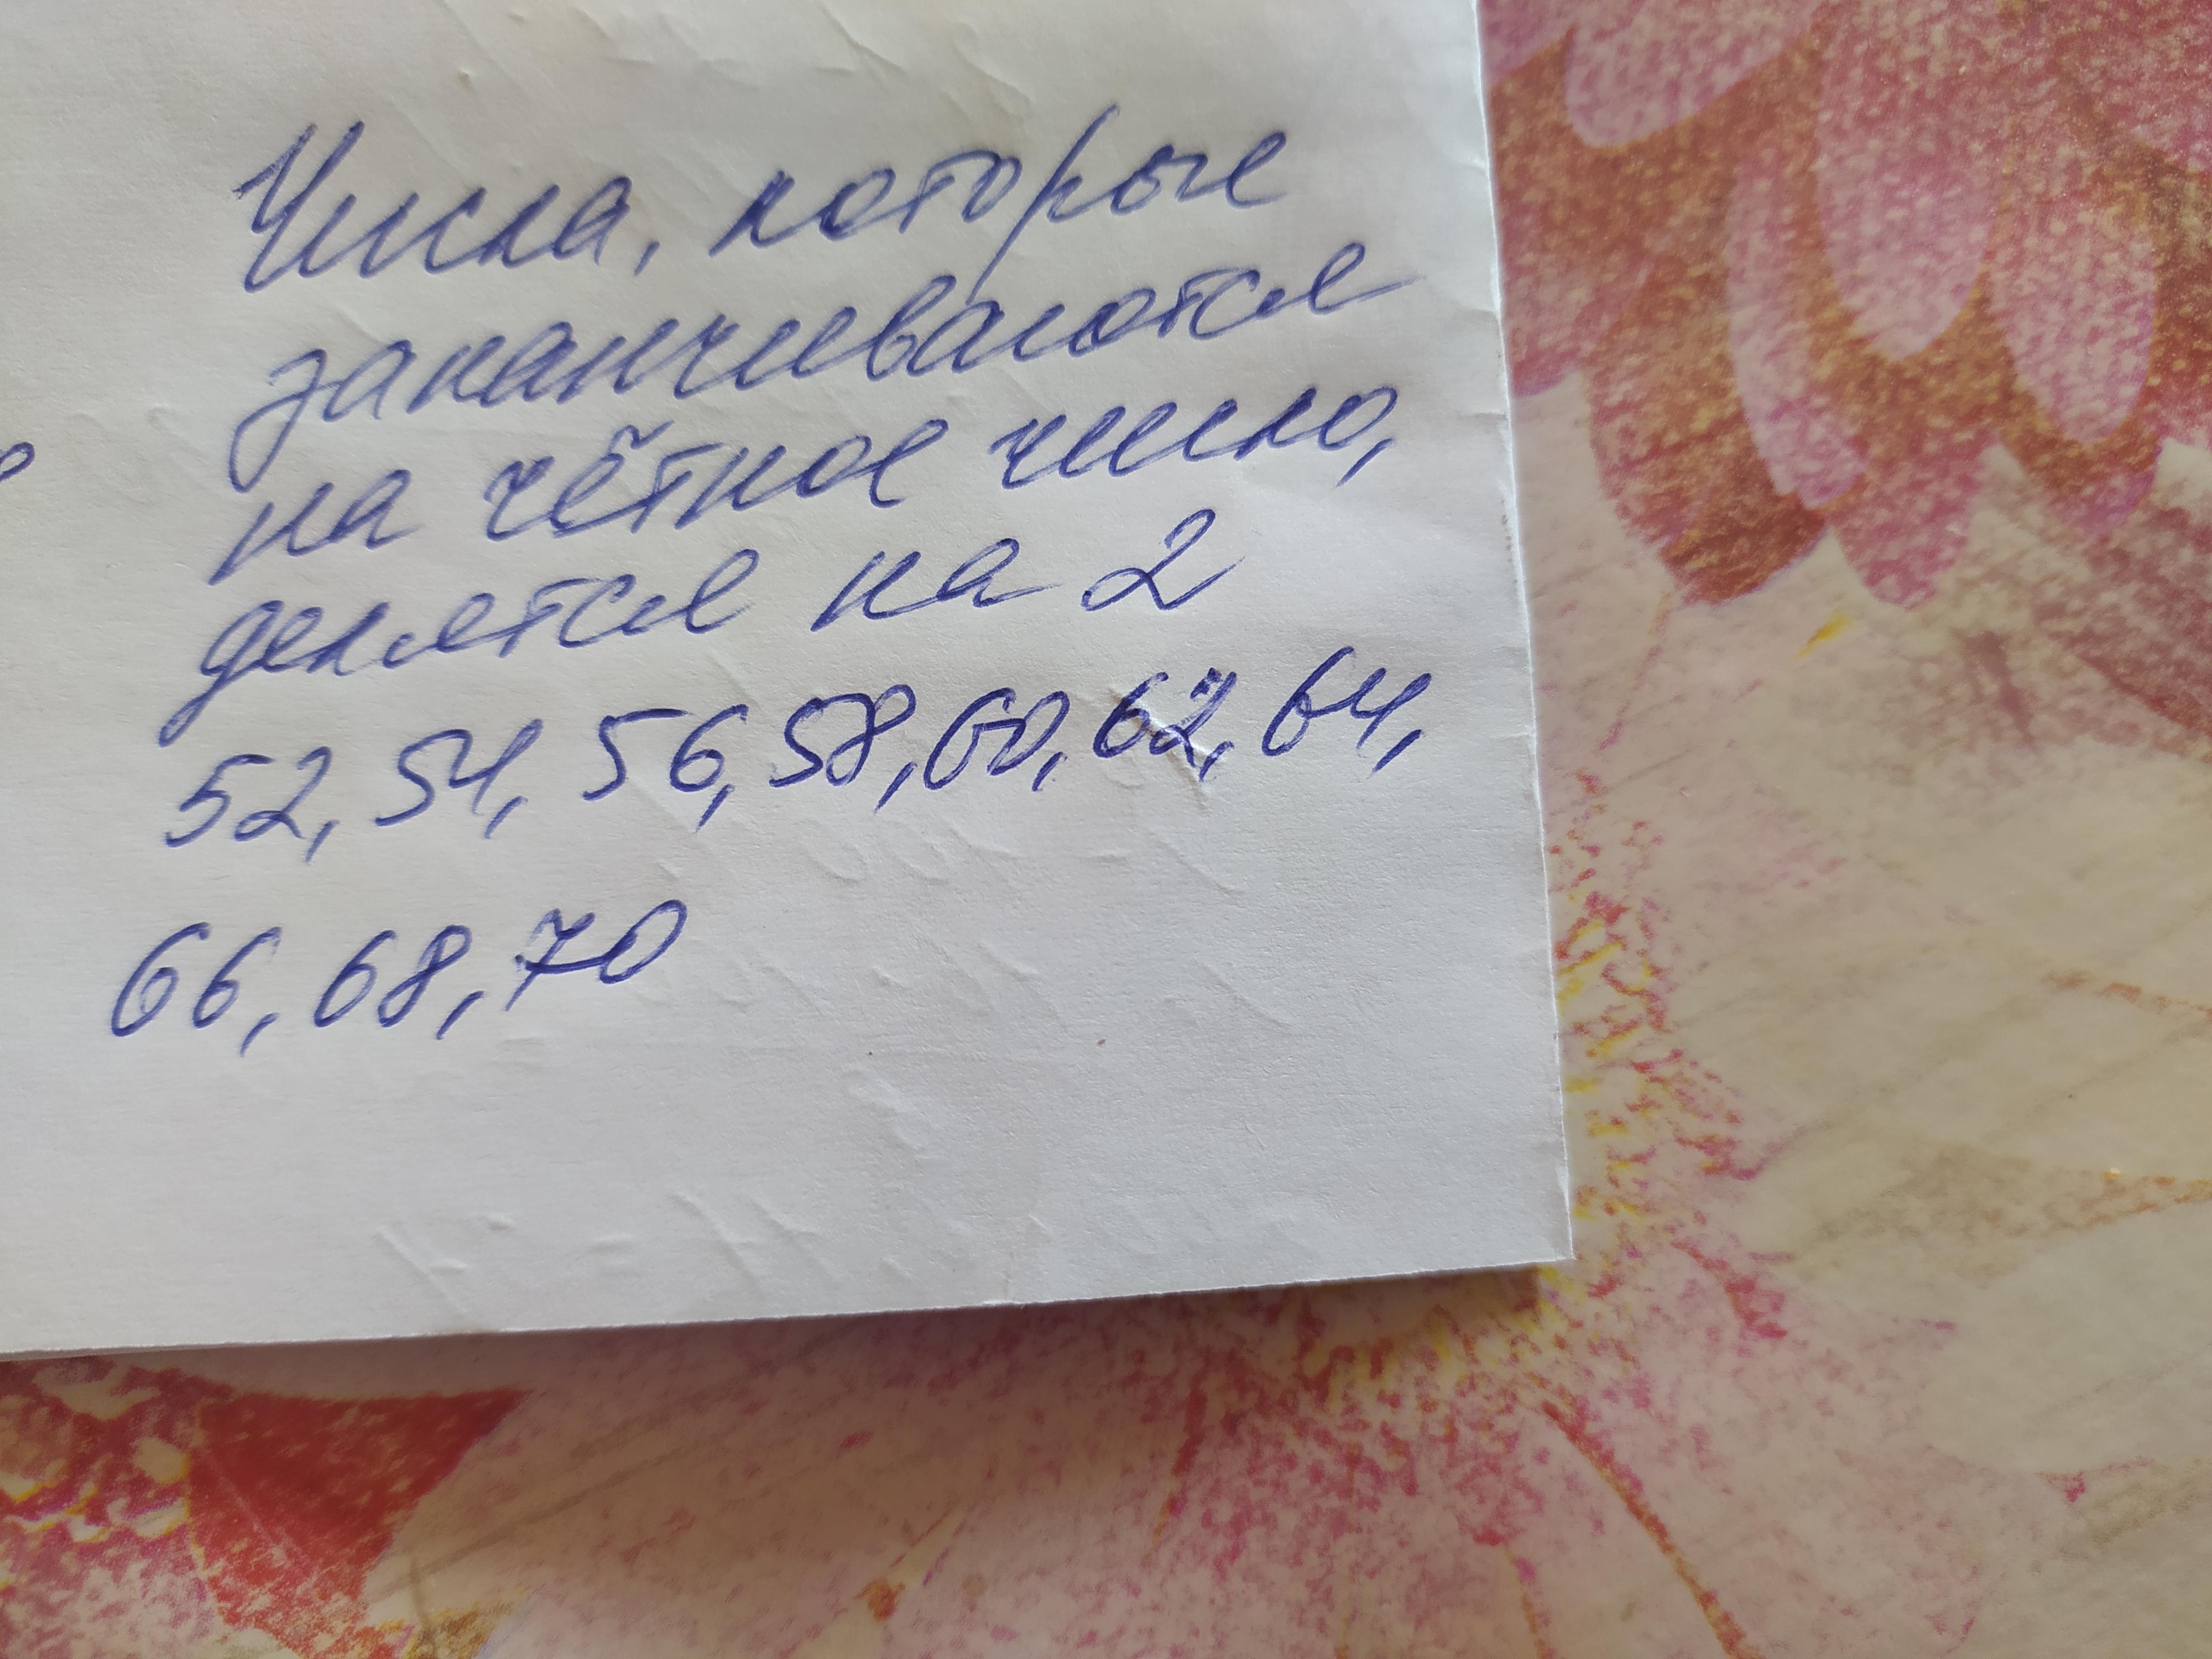 Числа, которые
заканчиваются
на чётное число,
делятся на 2
52, 54, 56, 58, 60, 62, 64,
66, 68, 70